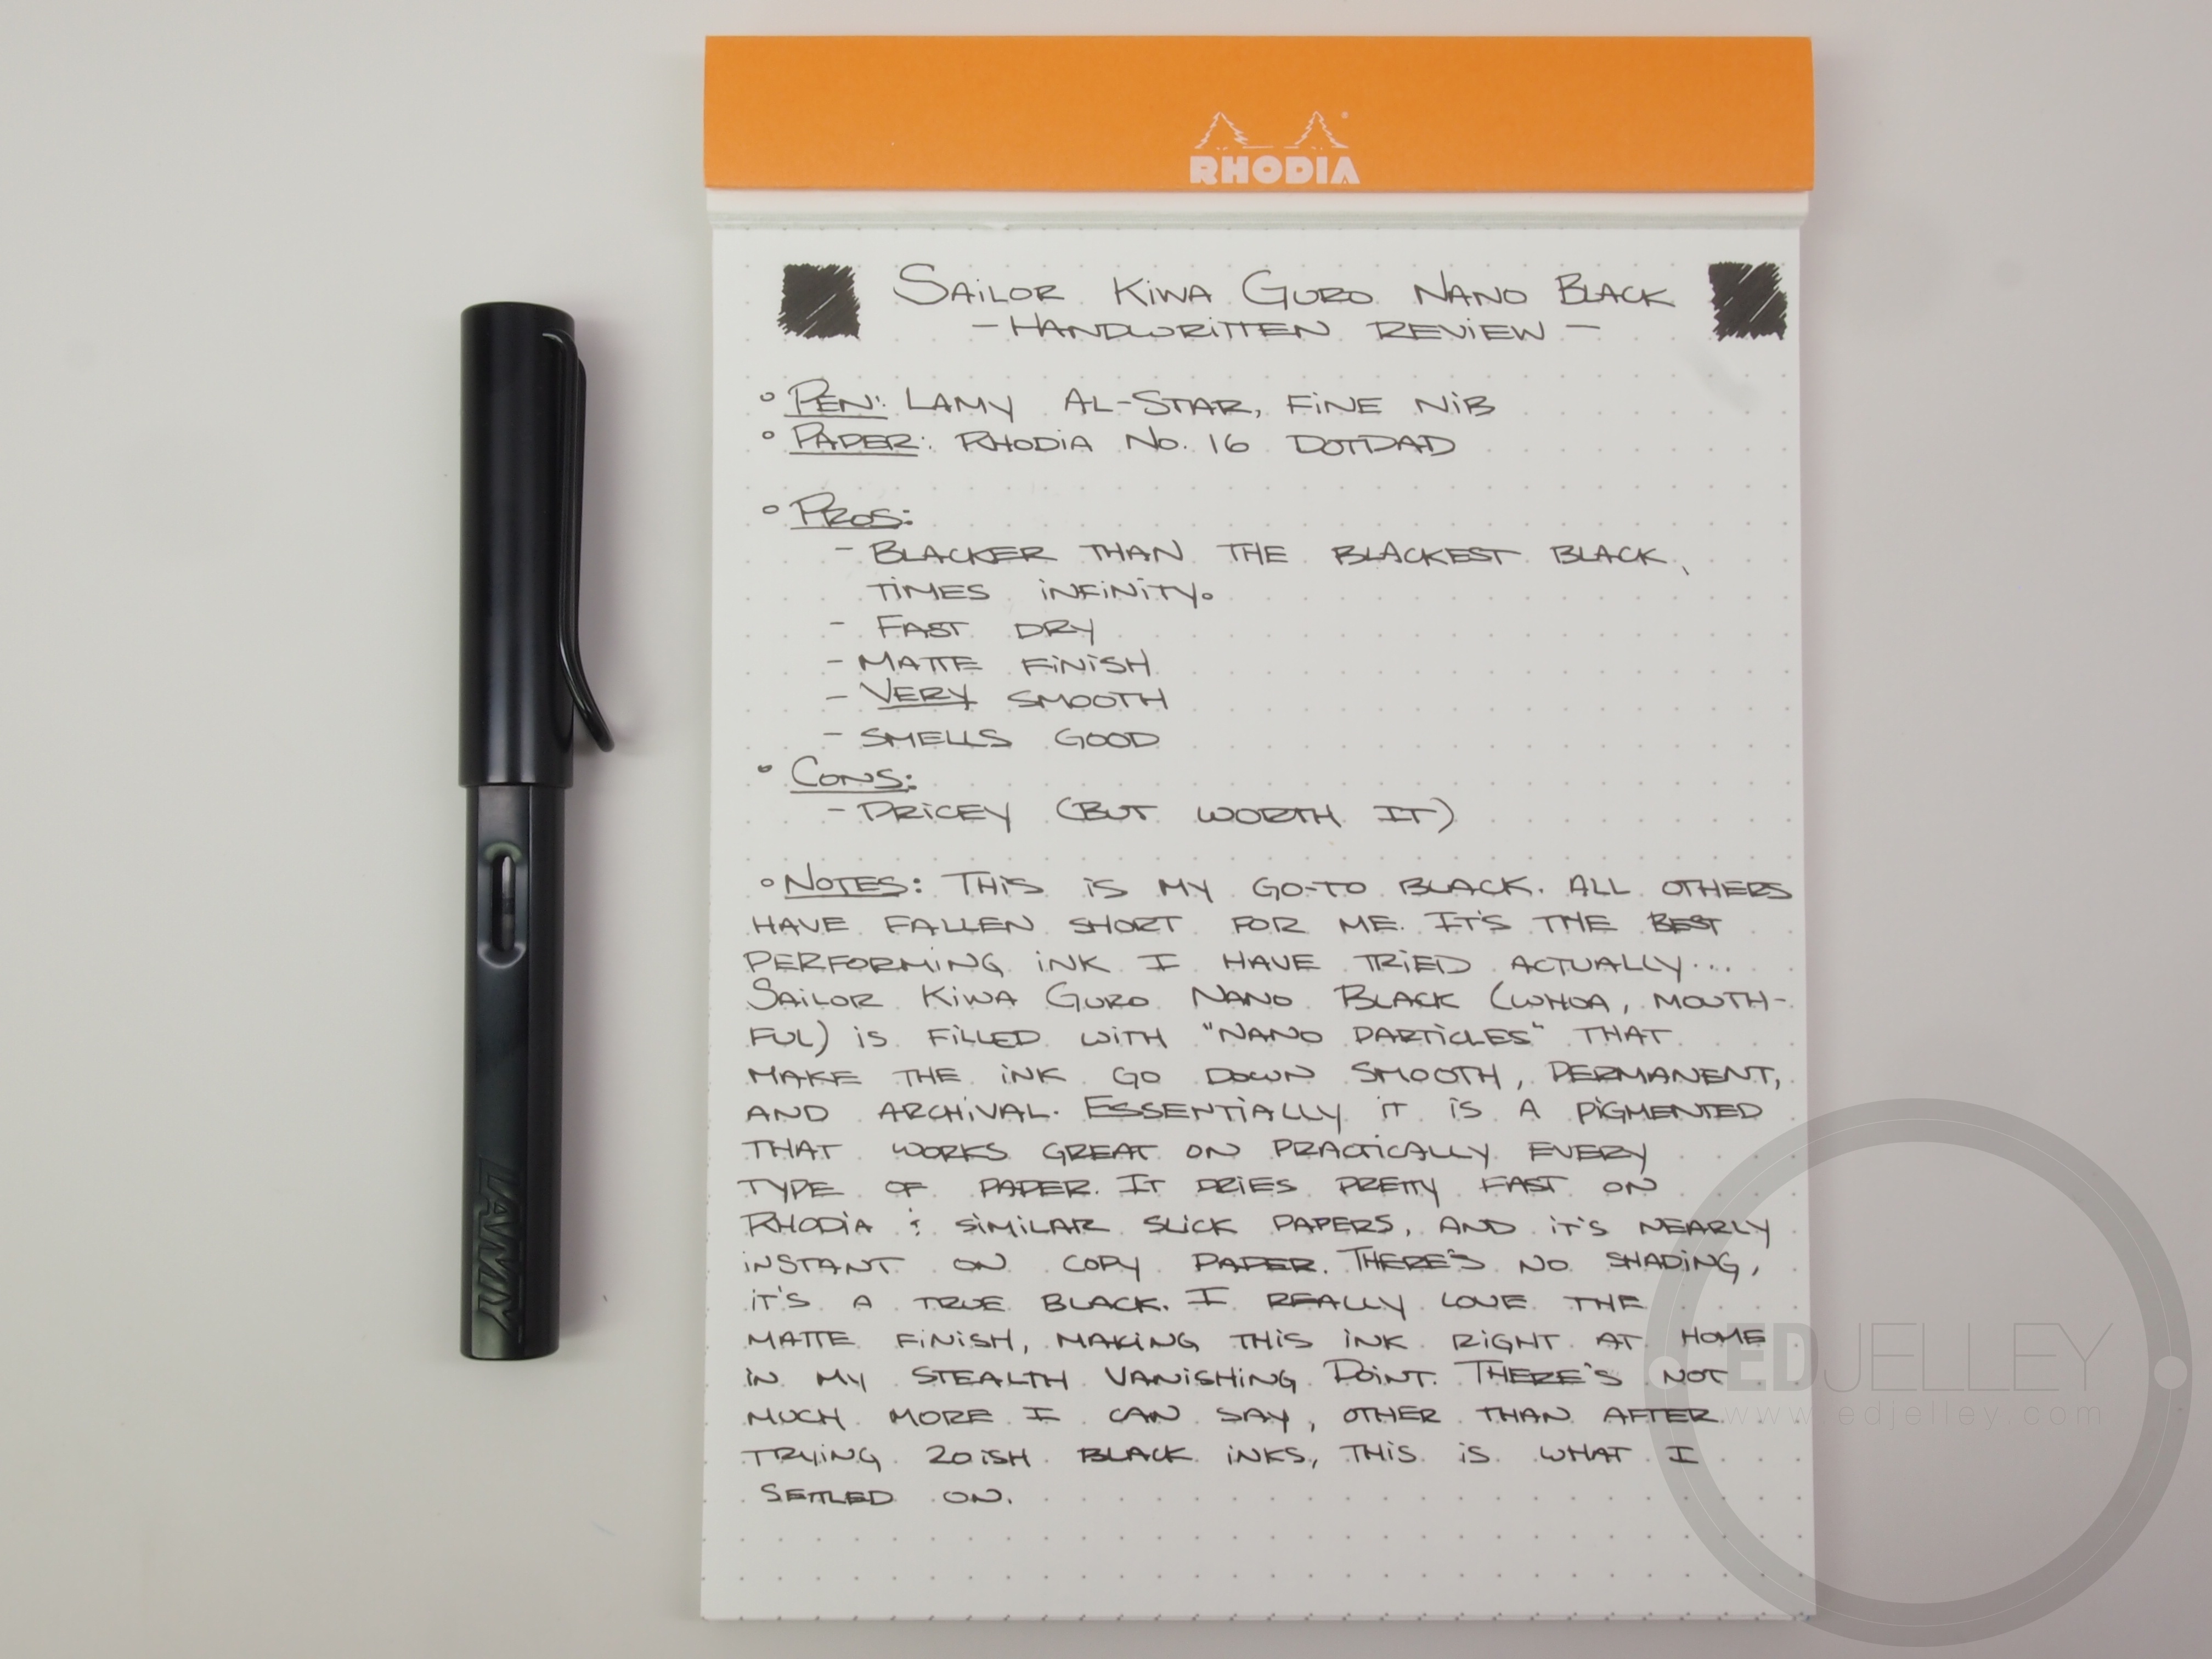 RHODIA
SAiLOR KiWA GURO NANO BLACK
- HANDWRiTTEN REViEW -
° PEN: LAMY AL-STAR, FiNE NiB
° PAPER: RHODiA No. 16 DOTPAD
° PROS:
- BLACKER THAN THE BLACKEST BLACK,
TiMES iNFiNiTY.
- FAST DRY
- MATTE FiNiSH
- VERY SMOOTH
- SMELLS GOOD
° CONS:
- PRiCEY (BUT WORTH IT)
° NOTES: THiS iS MY GO-TO BLACK. ALL OTHERS
HAVE FALLEN SHORT FOR ME. IT'S THE BEST
PERFORMiNG iNK I HAVE TRiED ACTUALLY...
SAiLOR KiWA GURO NANO BLACK (WHOA, MOUTH-
FUL) iS FiLLED WiTH "NANO PARTiCLES" THAT
MAKE THE iNK GO DOWN SMOOTH, PERMANENT,
AND ARCHiVAL. ESSENTiALLY iT iS A PiGMENTED
THAT WORKS GREAT ON PRACTiCALLY EVERY
TYPE OF PAPER. IT DRiES PRETTY FAST ON
RHODiA & SiMiLAR SLiCK PAPERS, AND iT'S NEARLY
iNSTANT ON COPY PAPER. THERE'S NO SHADiNG,
iT'S A TRUE BLACK. I REALLY LOVE THE
MATTE FiNiSH, MAKiNG THiS iNK RiGHT AT HOME
iN MY STEALTH VANiSHiNG POiNT. THERE'S NOT
MUCH MORE I CAN SAY, OTHER THAN AFTER
TRYiNG 20iSH BLACK iNKS, THiS iS WHAT I
SETTLED ON.
LAMY
EDJELLEY
www.edjelley.com